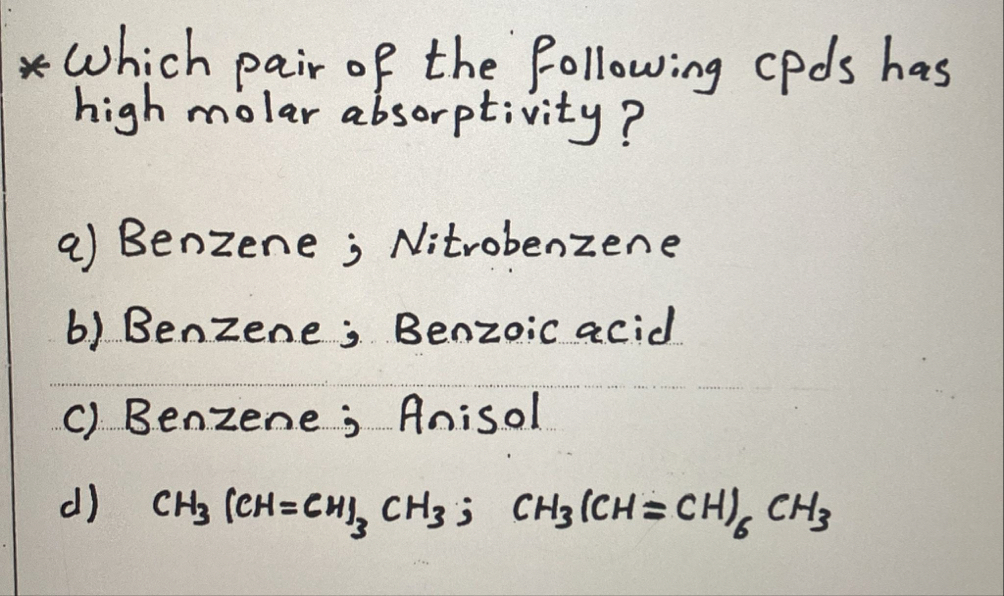 * Which pair of the following cpds has
high molar absorptivity?
a) Benzene ; Nitrobenzene
b) Benzene ; Benzoic acid
c) Benzene ; Anisol
d) CH₃ (CH=CH)₃ CH₃ ; CH₃ (CH=CH)₆ CH₃